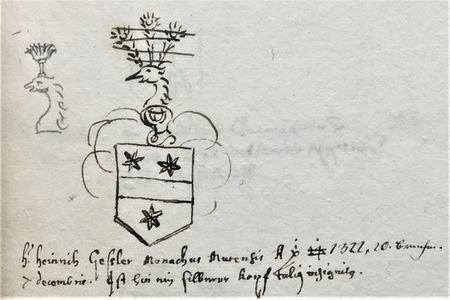 hr heinrich Geßler Monachus Murensis A xi 1322, 20.
7 decembris. Ist hin ein silberner kopf talis insignitus.